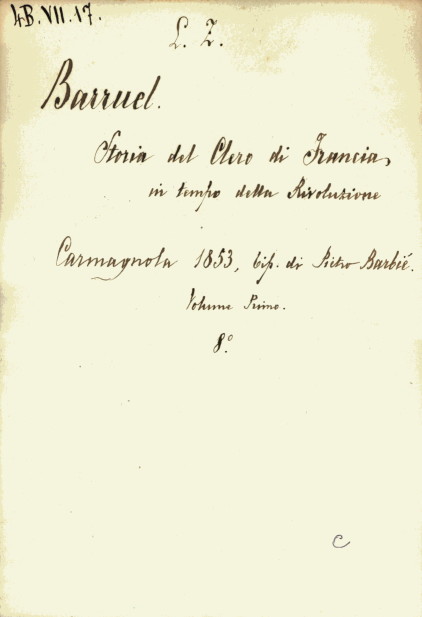 4B.VII.17.
L. Z.
Barruel.
Storia del Clero di Francia,
in tempo della Rivoluzione
Carmagnola 1853, tip. di Pietro Barbié.
Volume Primo.
8°
C